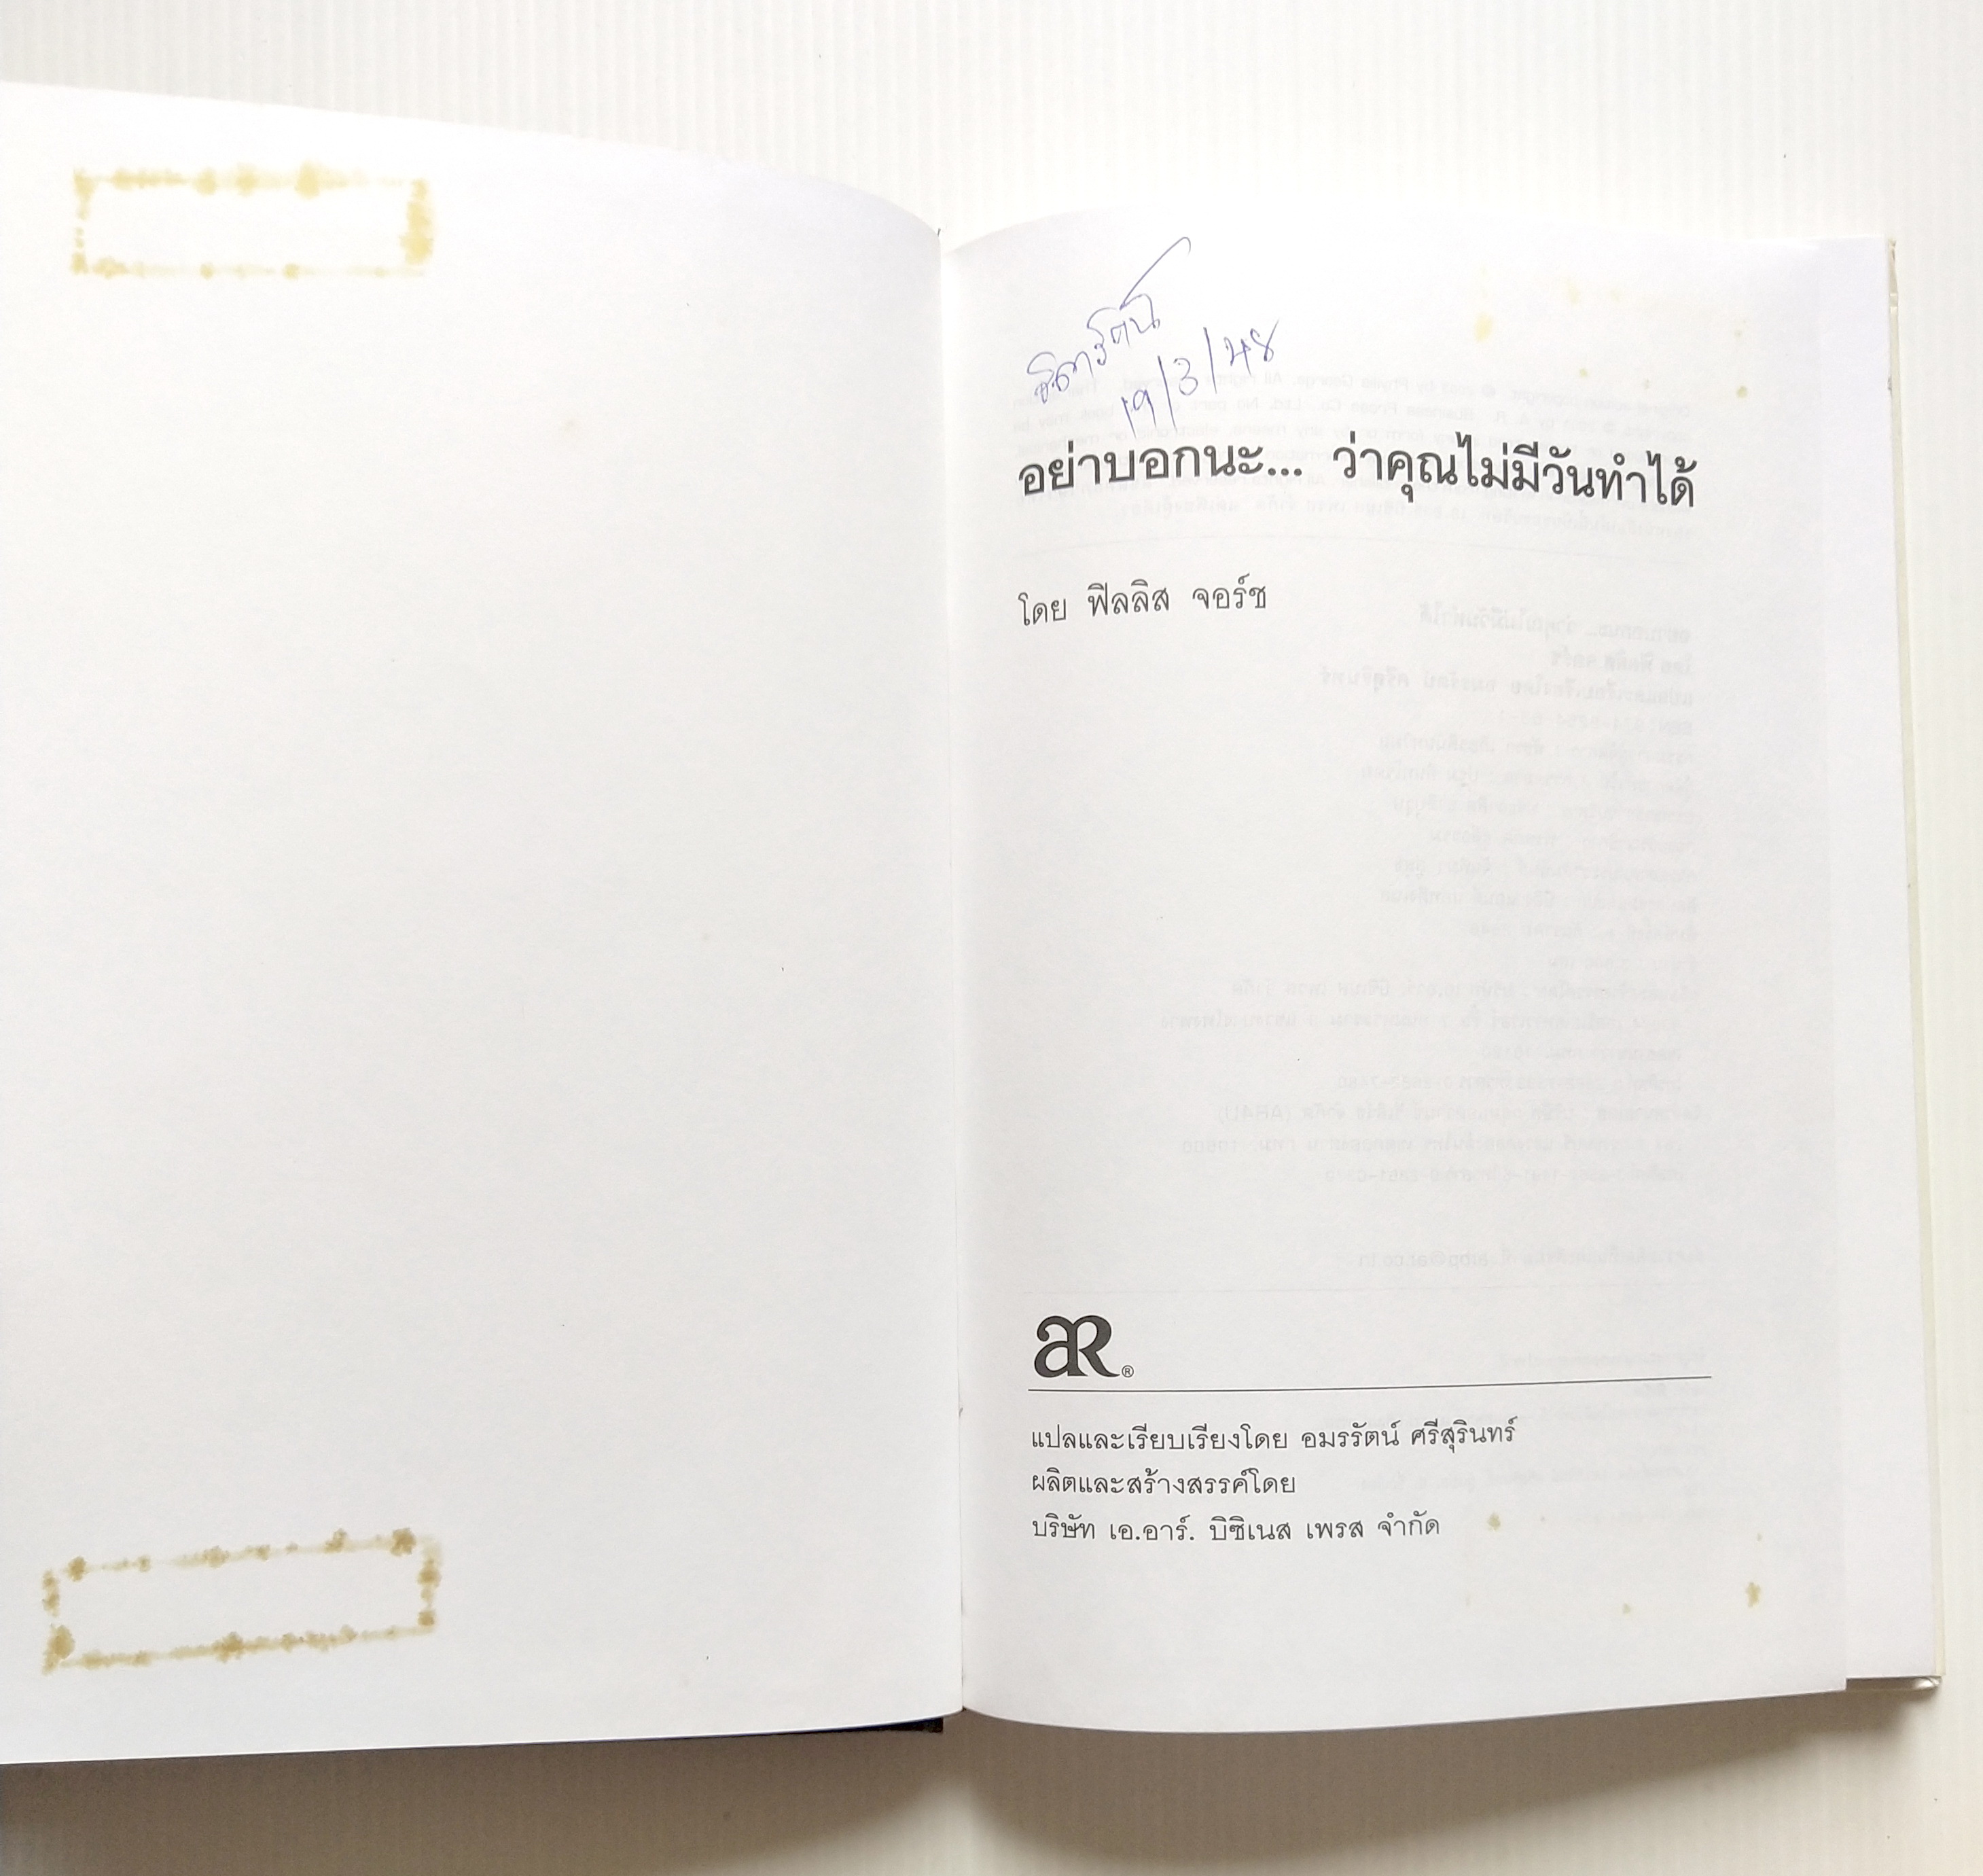 19/3/48
อย่าบอกนะ... ว่าคุณไม่มีวันทำได้
โดย ฟิลลิส จอร์ช
aR®
แปลและเรียบเรียงโดย อมรรัตน์ ศรีสุรินทร์
ผลิตและสร้างสรรค์โดย
บริษัท เอ.อาร์. บิซิเนส เพรส จำกัด